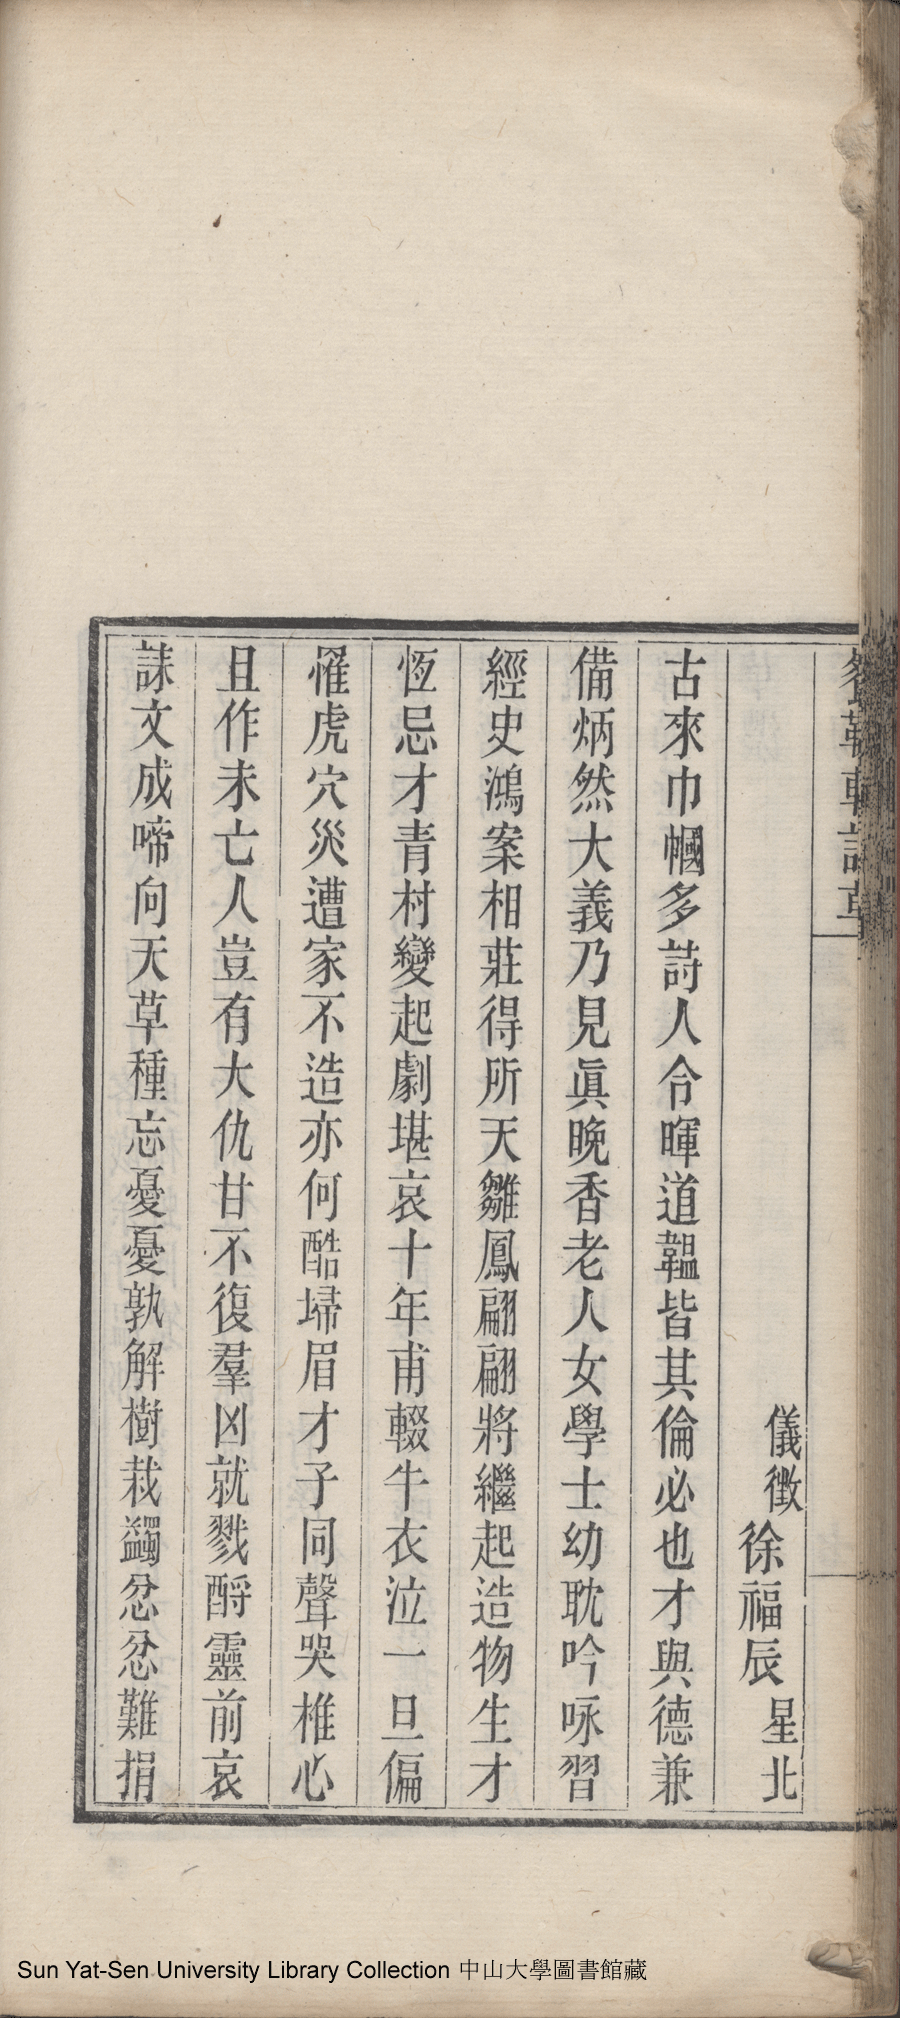 儀徵徐福辰星北
古來巾幗多詩人令暉道韞皆其倫必也才與德兼
備炳然大義乃見眞晚香老人女學士幼耽吟咏習
經史鴻案相莊得所天雛鳳翩翩將繼起造物生才
恆忌才青村變起劇堪哀十年甫輟牛衣泣一旦偏
罹虎穴災遭家不造亦何酷埽眉才子同聲哭椎心
且作未亡人豈有大仇甘不復羣凶就戮酹靈前哀
誄文成啼向天草種忘憂憂孰解樹栽蠲忿忿難捐
Sun Yat-Sen University Library Collection 中山大學圖書館藏